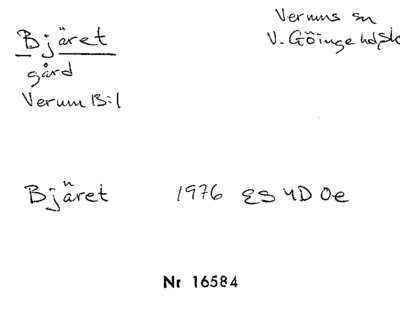 Verums sn
Bjäret V. Göinge hd, Sk
gård
Verum B:1
Bjäret 1976 ES 4D 0e
Nr 16584